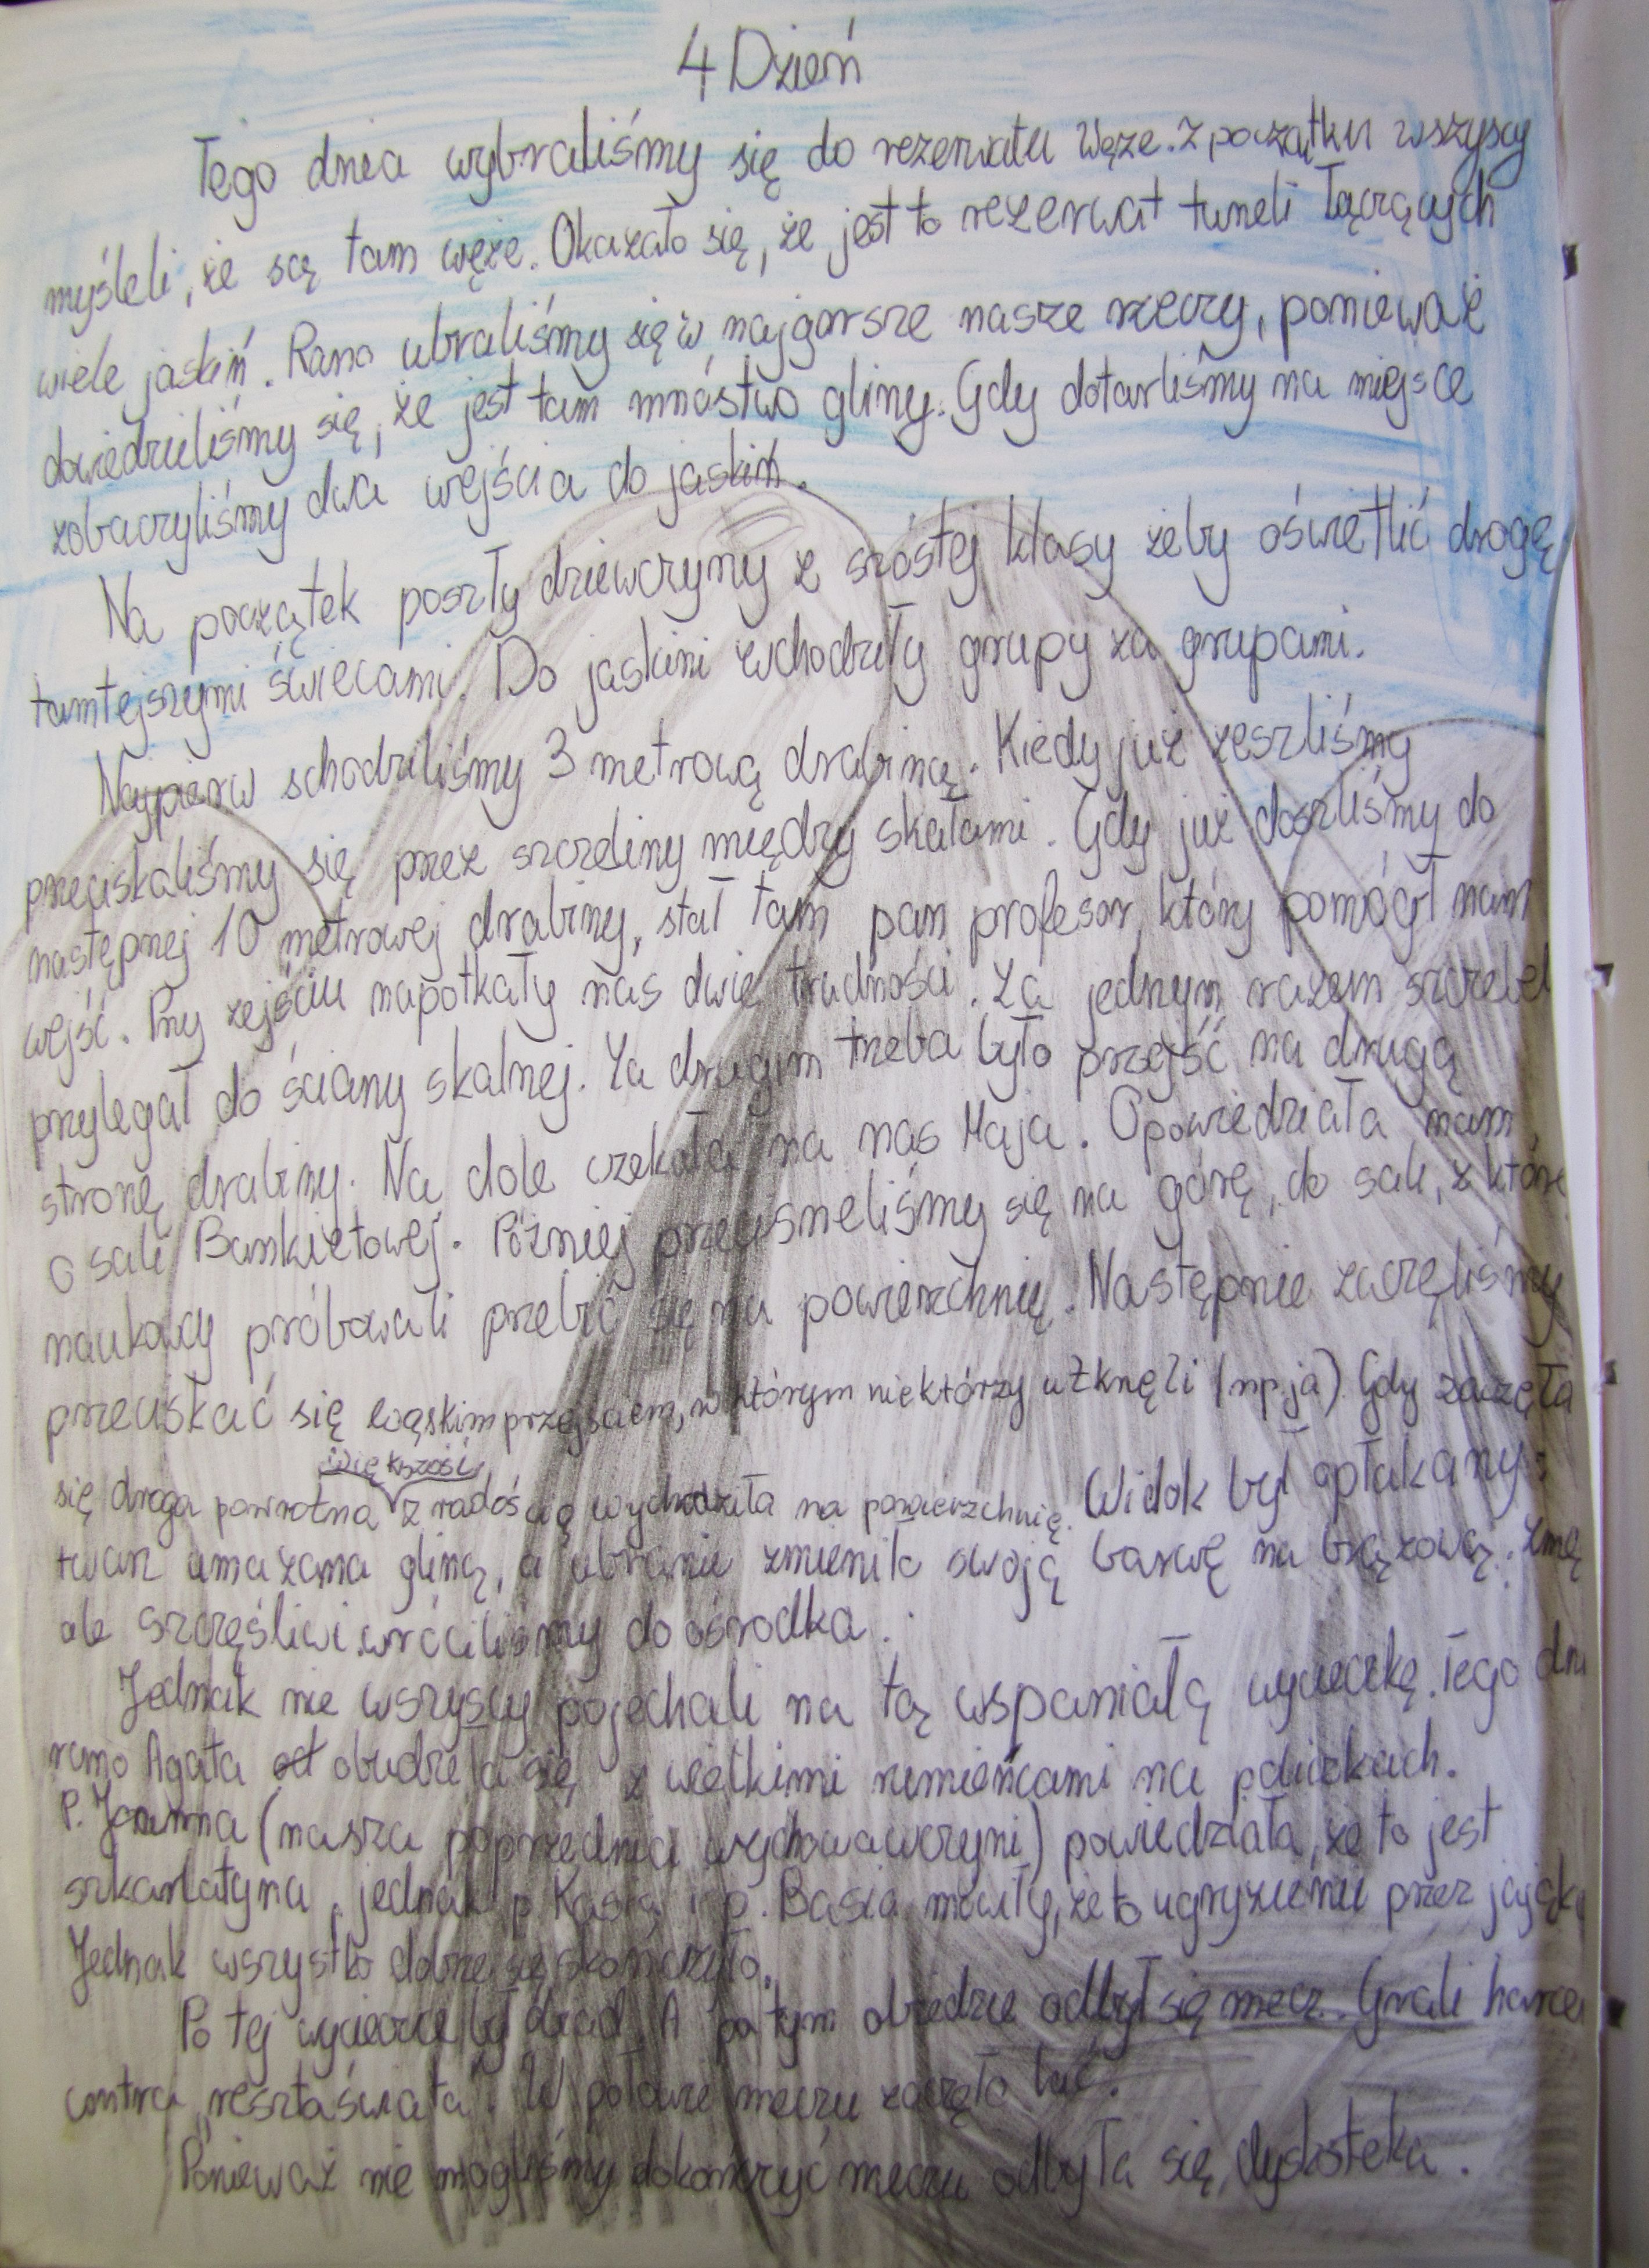 4 Dzień
Tego dnia wybraliśmy się do rezerwatu Węże. Z początku wszyscy
myśleli, że są tam węże. Okazało się, że jest to rezerwat tuneli łączących
wiele jaskiń. Rano ubraliśmy się w najgorsze nasze rzeczy, ponieważ
dowiedzieliśmy się, że jest tam mnóstwo gliny. Gdy dotarliśmy na miejsce
zobaczyliśmy dwa wejścia do jaskiń.
Na początek poszły dziewczyny z szóstej klasy żeby oświetlić drogę
tamtejszymi świecami. Do jaskini wchodziły grupy za grupami.
Najpierw schodziliśmy 3 metrową drabiną. Kiedy już zeszliśmy
przeciskaliśmy się przez szczeliny między skałami. Gdy już doszliśmy do
następnej 10 metrowej drabiny, stał tam pan profesor, który pomógł nam
wejść. Przy zejściu napotkały nas dwie trudności. Za jednym razem szczebel
przylegał do ściany skalnej. Za drugim trzeba było przejść na drugą
stronę drabiny. Na dole czekała na nas Maja. Opowiedziała nam
o sali Bankietowej. Później przecisneliśmy się na górę, do sali, z które
naukowcy próbowali przebić się na powierzchnię. Następnie zaczęliśmy
przeciskać się wąskim przejściem, w którym niektórzy utknęli (np. ja). Gdy zaczęła
się droga powrotna większość z radością wychodziła na powierzchnię. Widok był opłakany:
twarz umazana gliną, a ubranie zmieniło swoją barwę na brązową. Zmę
ale szczęśliwi wróciliśmy do ośrodka.
Jednak nie wszyscy pojechali na tą wspaniałą wycieczkę. Tego dni
rano Agata obudziła się z wielkimi rumieńcami na policzkach.
P. Joanna (nasza poprzednia wychowawczyni) powiedziała, że to jest
szkarlatyna, jednak p. Kasia i p. Basia mówiły, że to ugryzienie przez jająk
Jednak wszystko dobrze się skończyło.
Po tej wycieczce był obiad. A po tym obiedzie odbył się mecz. Grali harce
contra „reszta świata". W połowie meczu zaczęło lać.
Ponieważ nie mogliśmy dokończyć meczu odbyła się dyskoteka.